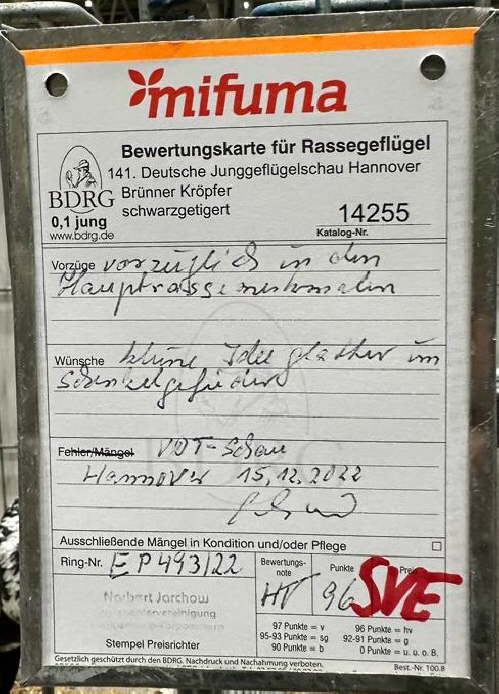 mifuma
Bewertungskarte für Rassegeflügel
141. Deutsche Junggeflügelschau Hannover
Brünner Kröpfer
schwarzgetigert
BDRG
0,1 jung
www.bdrg.de
14255
Katalog-Nr.
Vorzüge vorzüglich in den
Hauptrassemerkmalen
Wünsche kleine Idee glatter im
Schenkelgefieder
Fehler/Mängel VDT-Schau
Hannover 15.12.2022
Ausschließende Mängel in Kondition und/oder Pflege
Ring-Nr. EP493/22
Bewertungs-
note
HV
Punkte
96
Preis
SVE
Norbert Jarchow
Stempel Preisrichter
97 Punkte = v 96 Punkte = hv
95-93 Punkte = sg 92-91 Punkte = g
90 Punkte = b 0 Punkte = u. u. o. B.
Gesetzlich geschützt durch den BDRG. Nachdruck und Nachahmung verboten.
Best.-Nr. 100.8